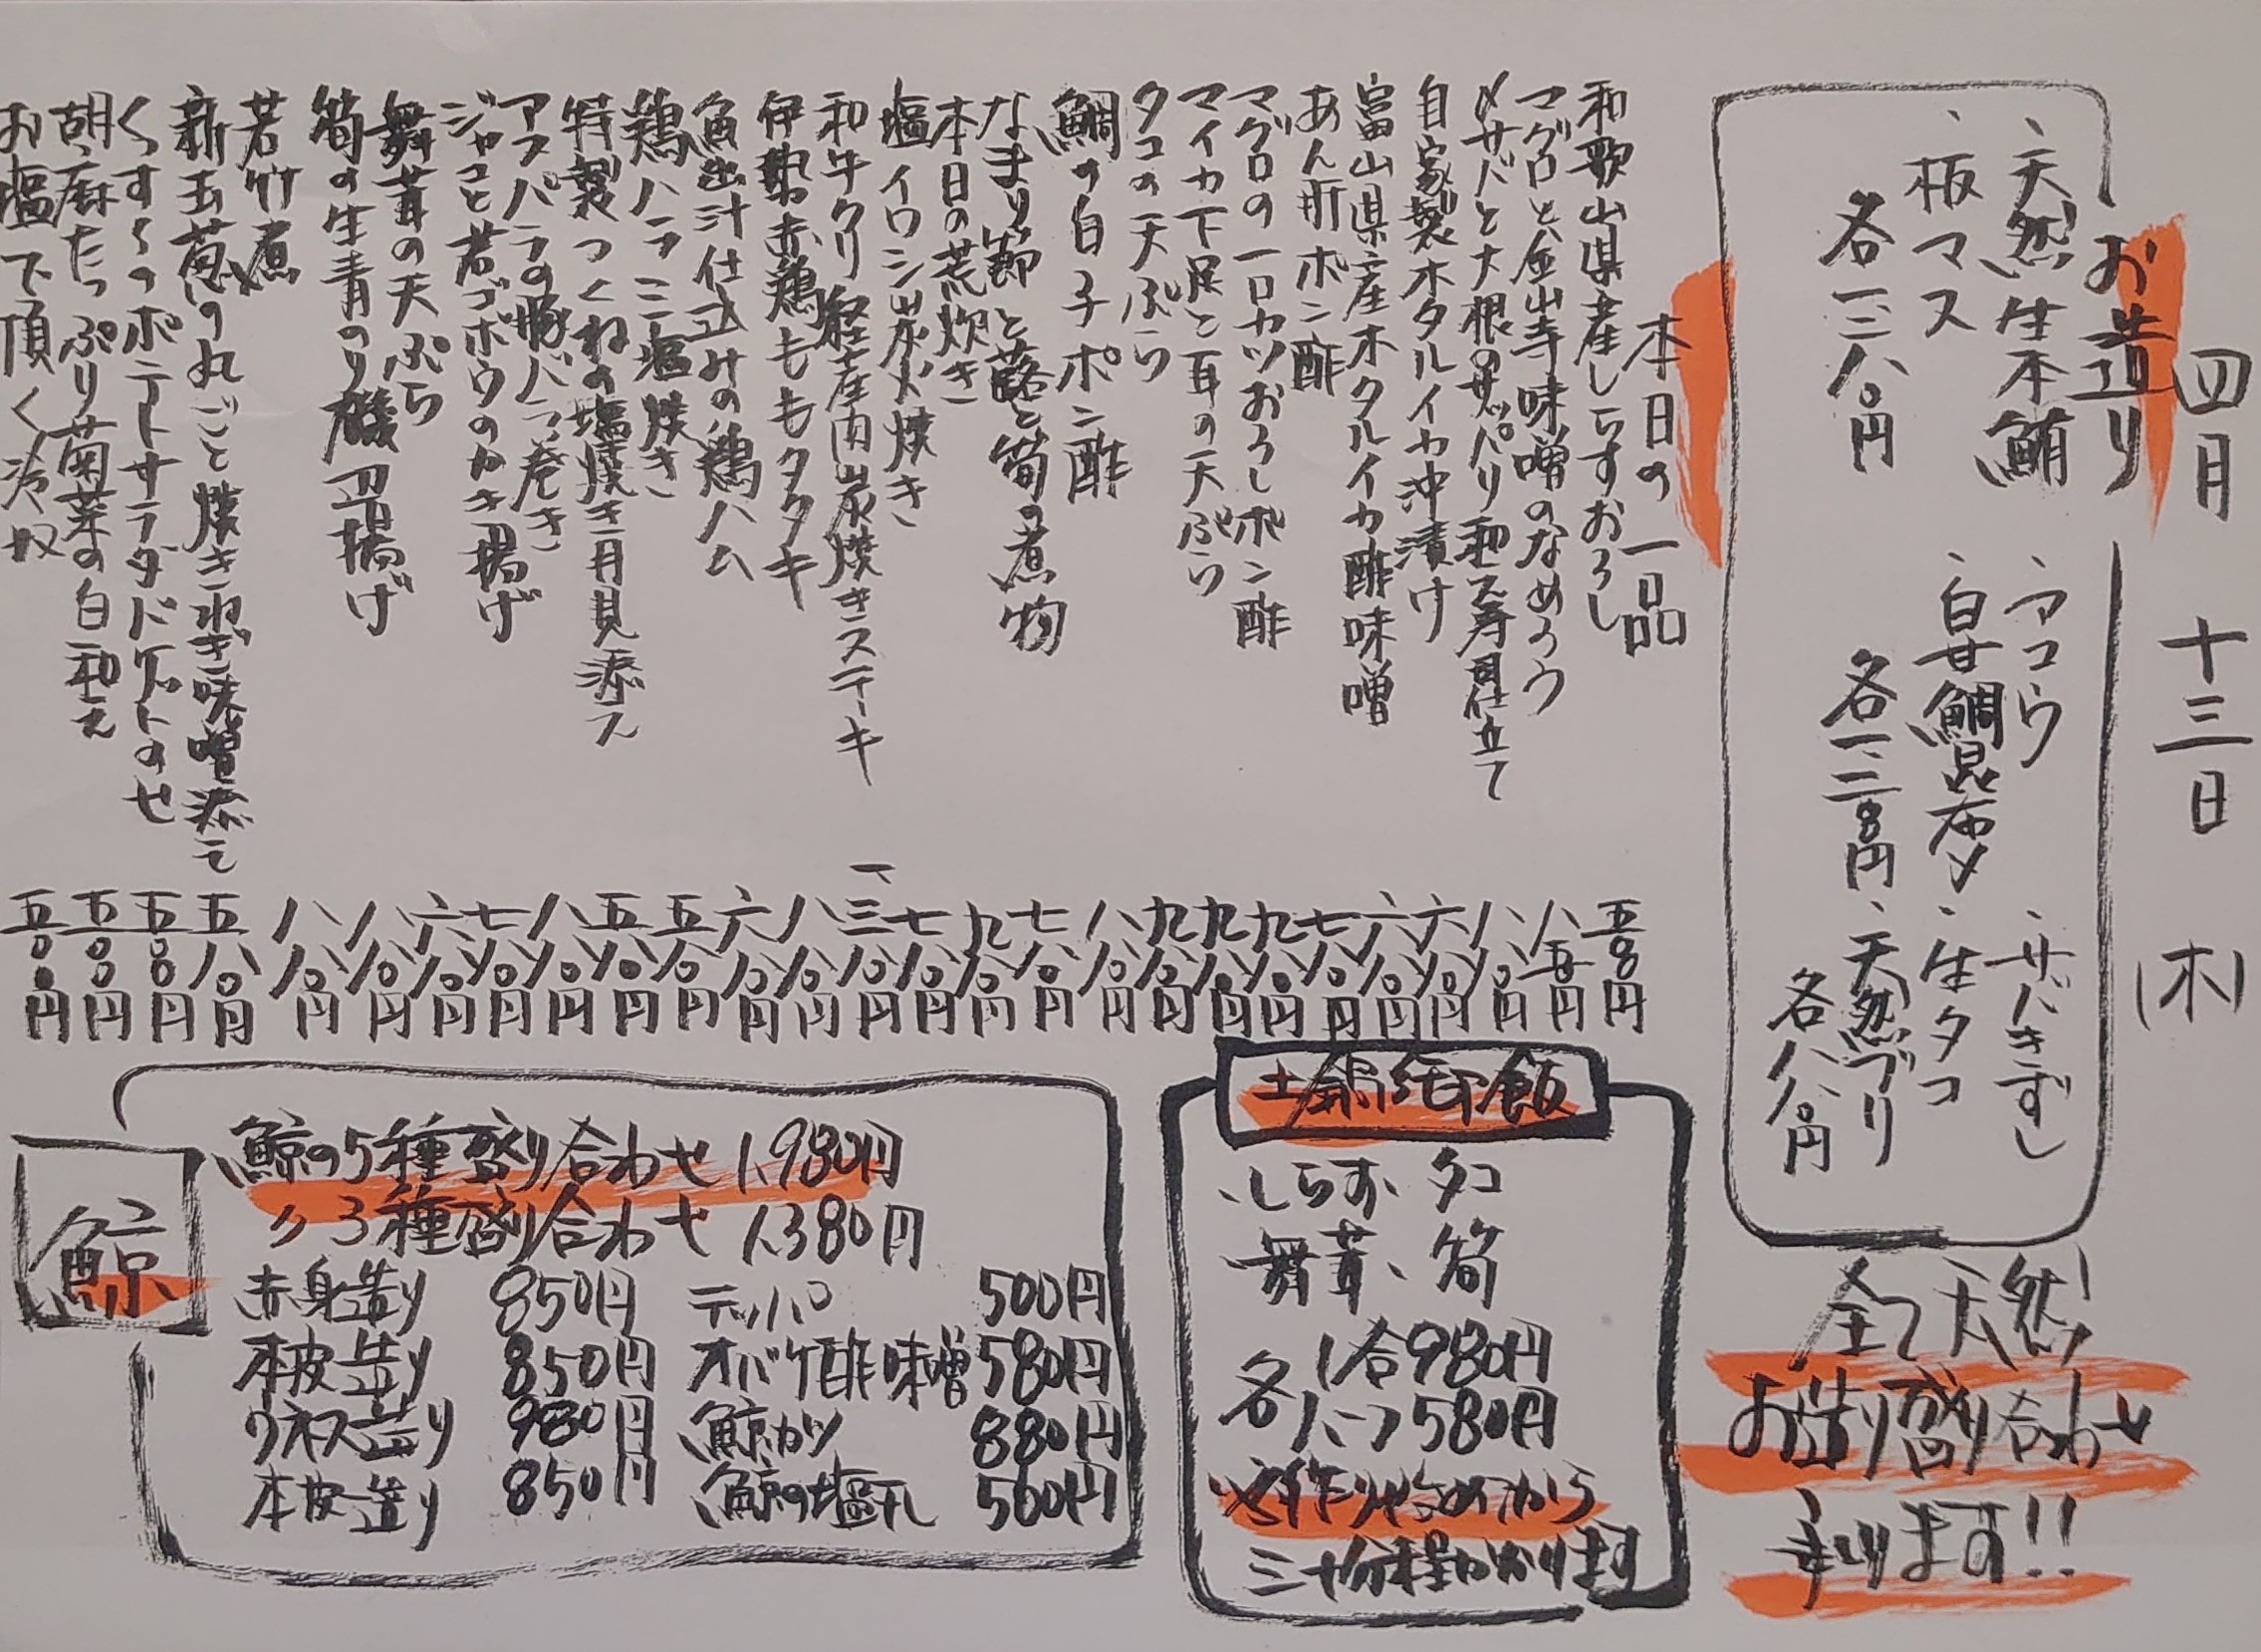 四月十三日(木)
お造り
、天然生本鮪
、板マス
各一三八〇円
、アコウ
、白甘鯛昆布〆
各一、二八〇円
、サバきずし
、生タコ
、天然ブリ
各八八〇円
全て天然!
お造り盛り合わせ
承ります!!
本日の一品
和歌山県産しらすおろし 五八〇円
マグロと金山寺味噌のなめろう 八五〇円
〆サバと大根のサッパリ和え寿司仕立て 八八〇円
自家製ホタルイカ沖漬け 六八〇円
富山県産ホタルイカ酢味噌 六八〇円
あん肝ポン酢 七八〇円
マグロの一口カツおろしポン酢 九八〇円
マイカ下足と耳の天ぷら 九八〇円
タコの天ぷら 九八〇円
鯛の白子ポン酢 八八〇円
なまり節と蕗と筍の煮物 七八〇円
本日の荒炊き 九八〇円
塩イワシ炭火焼き 七八〇円
和牛クリ 経産肉炭焼きステーキ 一、三八〇円
伊勢赤鶏ももタタキ 八八〇円
魚出汁仕込みの鶏ハム 六八〇円
鶏ハラミ塩焼き 五八〇円
特製つくねの塩焼き 月見添え 五八〇円
アスパラの豚バラ巻き 八八〇円
ジャコと若ゴボウのかき揚げ 七八〇円
舞茸の天ぷら 六八〇円
筍の生青のり磯辺揚げ 八八〇円
若竹煮 八八〇円
新玉葱の丸ごと焼き ねぎ味噌添え 五八〇円
くすくすのポテトサラダ ドゲットのせ 五〇〇円
胡麻たっぷり菊菜の白和え 五〇〇円
お塩で頂く冷奴 五〇〇円
土鍋御飯
、しらす、タコ
舞茸、筍
各1合980円
各ハーフ580円
※作り始めてから
三十分程かかります
鯨
鯨の5種盛り合わせ 1,980円
〃 3種盛り合わせ 1,380円
赤身造り 850円 テッパ 500円
本皮造り 850円 オバケ酢味噌 580円
ウネス造り 980円 鯨カツ 880円
本皮造り 850円 鯨の塩干し 560円